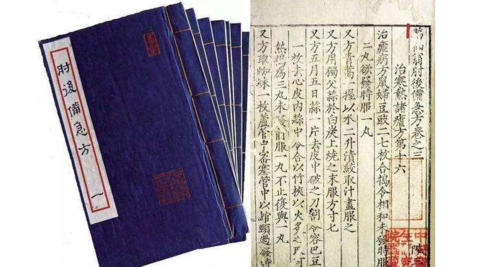 肘后備急方
一
治寒熱諸瘧方第十六
治瘧病方鼠婦豆豉二七枚合擣令相和未發時服
二丸欲發時服一丸
又方青蒿一握以水二升漬絞取汁盡服之
又方用獨父蒜於白炭上燒之末服方寸匕
又方五月五日蒜一片去皮中破之刀割令容巴豆
一枚去心皮內蒜中令合以竹挾以火炙之取可
熱擣為三丸未發前服一丸不止復與一丸